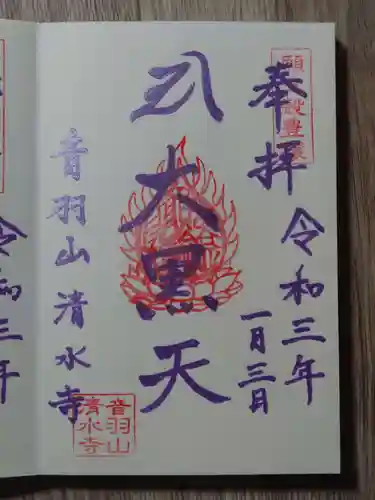 奉拝
令和三年
一月三日
大黒天
音羽山清水寺
音羽山
清水寺
令和三年